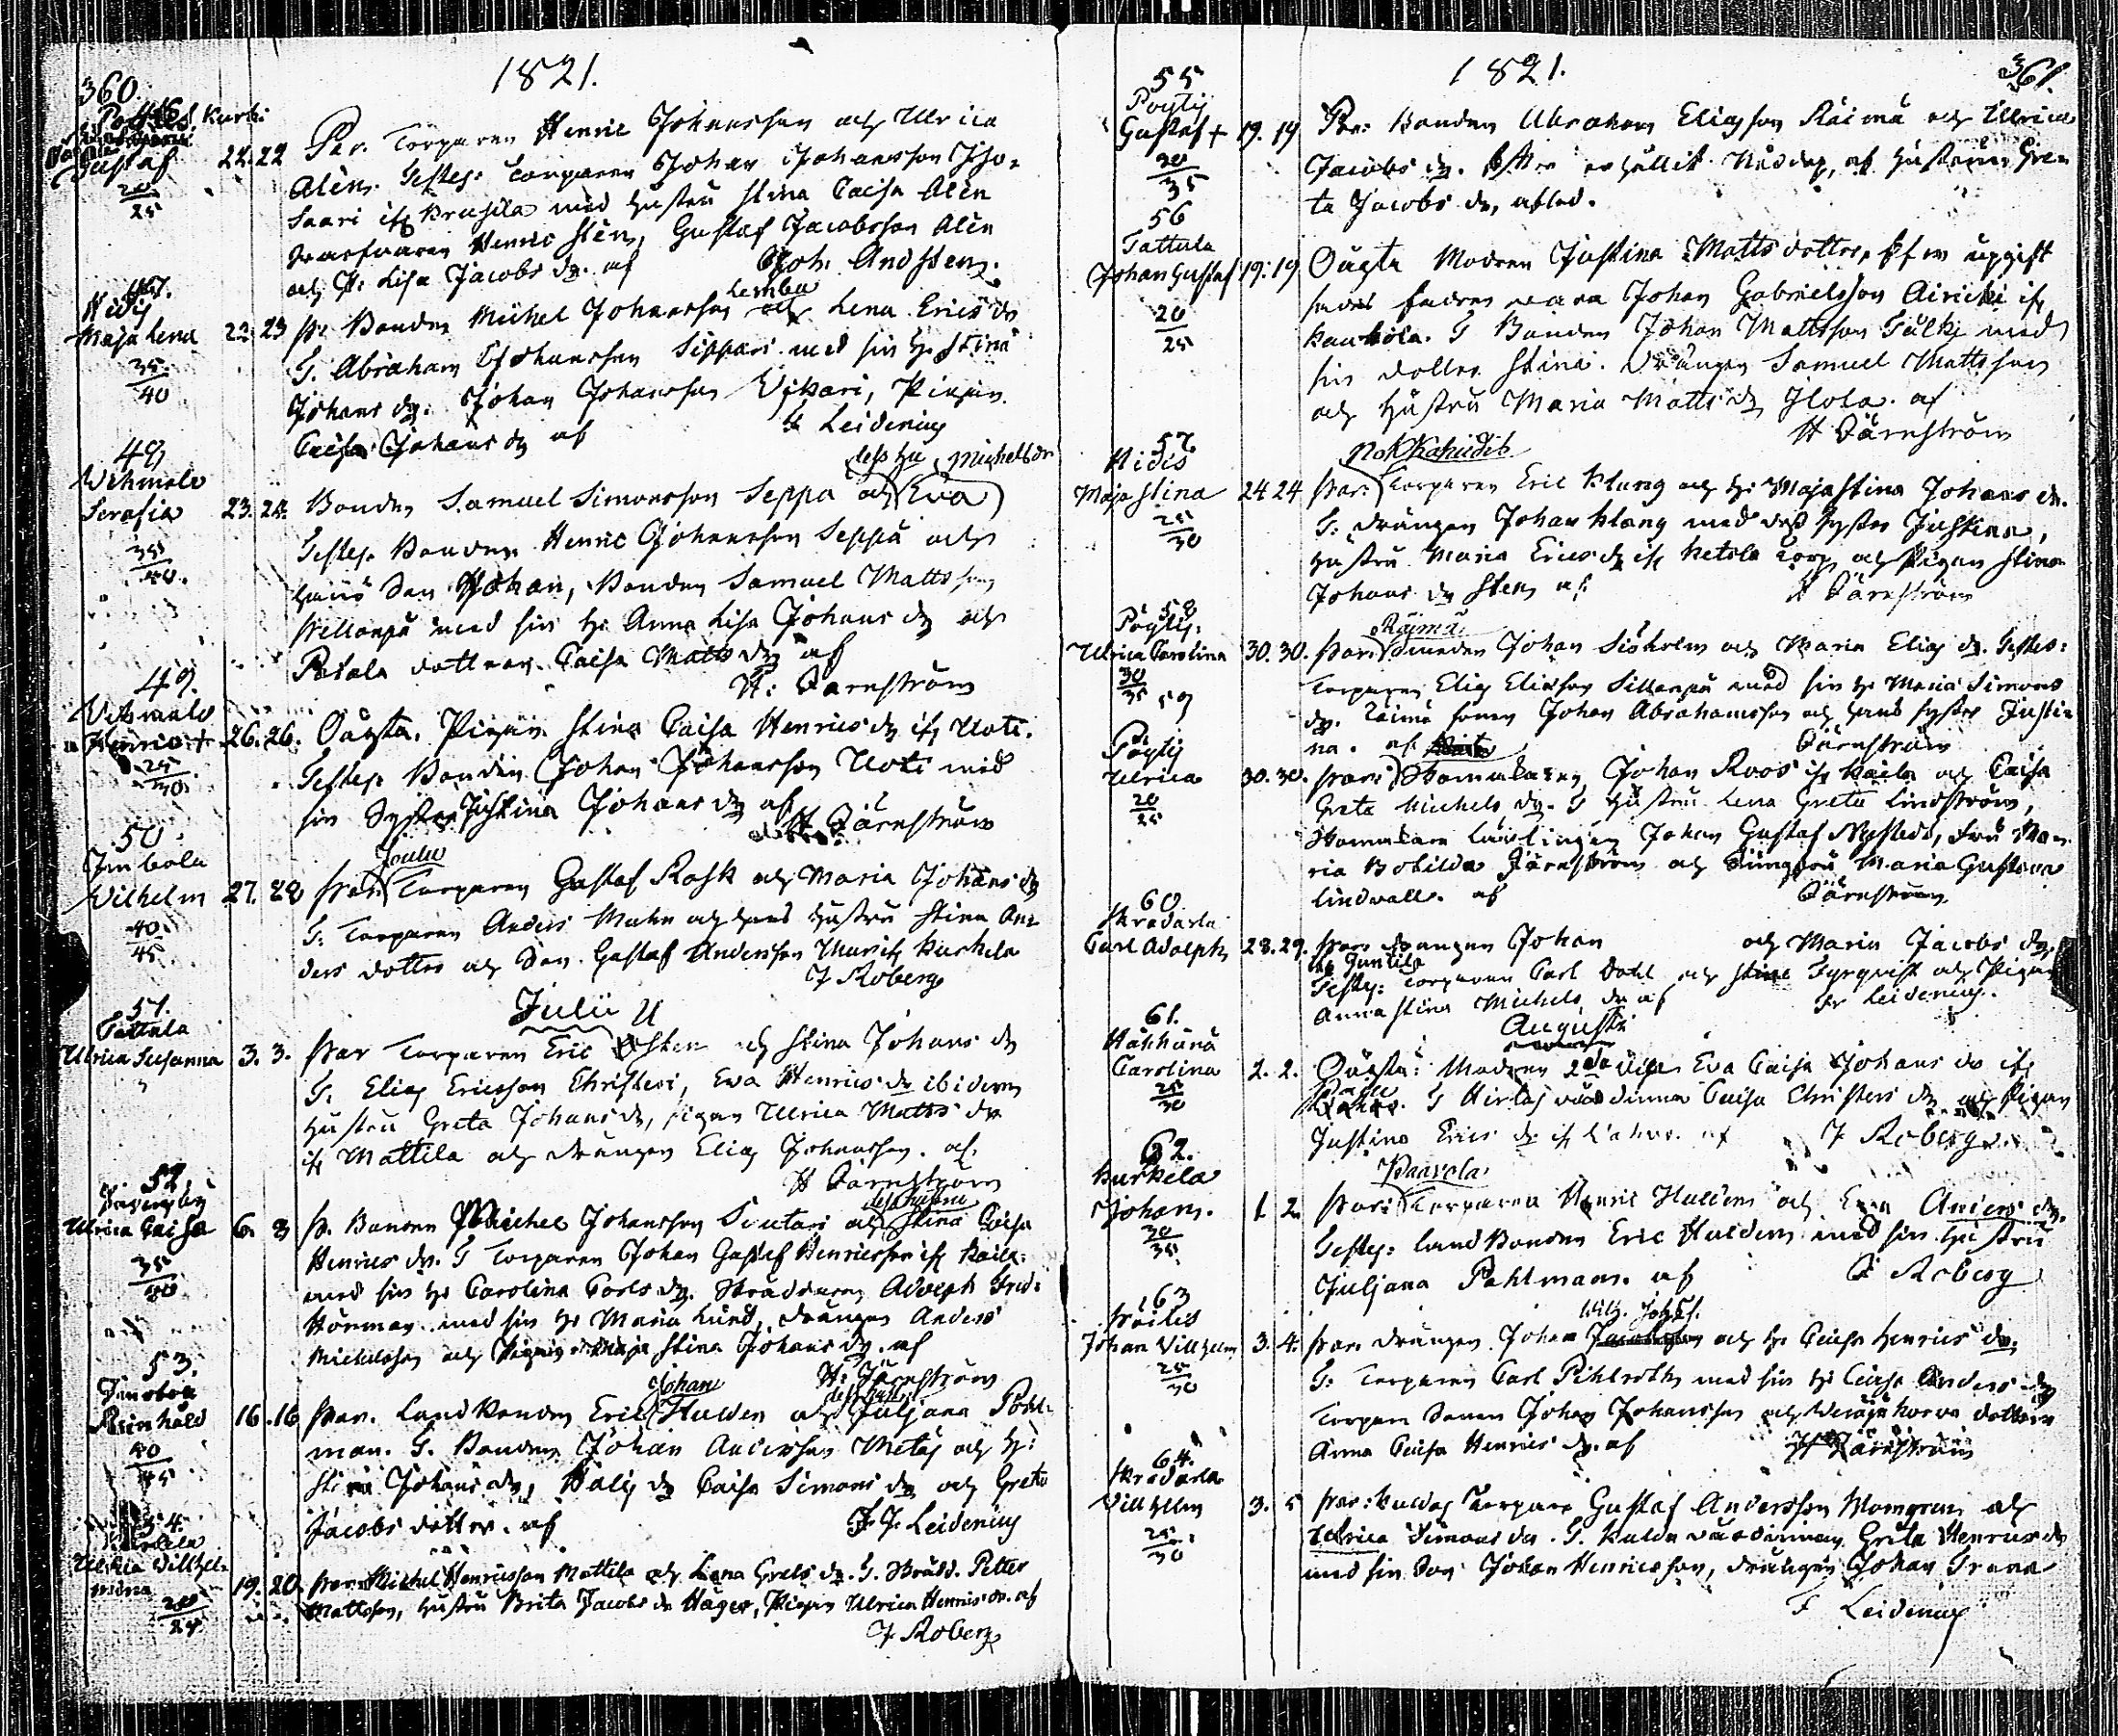 360
1821.
46.
Kurki
Gustaf
22. 22
20
25
Par. Torparen Henric Johansson och Ulrica
Alén. Testes: Torparen Johan Johansson Iso-
Saari ifr. Krusila med hustru Stina Caisa Alén
Henric Stén, Gustaf Jacobsson Alén
och H. Lisa Jacobs dr. af
Joh. And Sten.
47.
Hidis
Maja Lena
22. 23
35
40
Lemba
Pr. Bonden Michel Johansson och Lena Erics dr
T. Abraham Johansson Sippari med sin H. Stina
Johans dr. Johan Johansson Vikari, Pigan
Caisa Johans dr af
F Leidenius
48
Vehmalo
Serafia
23. 24.
35
40.
dess hu Michels dr
Bonden Samuel Simonsson Seppä och Eva
Testes. Bonden Henric Johansson Seppä och
hans Son Johan, Bonden Samuel Mattsson
Sillanpä med sin H. Anna Lisa Johans dr och
Potala dottren Caisa Matts dr af
H: Järnström
49.
Vehmalo
Henric +
26. 26.
25
30
Oägta. Pigan Stina Caisa Henrics dr ifr. Uoti.
Testes. Bonden Johan Johansson Uoti med
sin Syster Justina Johans dr af
H Järnström
50.
Jenbola
Wilhelm
27. 28
40
45
Joulu
Par. Torparen Gustaf Rosk och Maria Johans dr
T: Torparen Anders Malm och hans hustru Stina An-
ders dotter och Son Gustaf Andersson ifr. Kurkela
J Roberg
Julii
51.
Tattula
Ulrica Susanna
3. 3.
Par Torparen Eric Östen och Stina Johans dr
T. Elias Ericsson Christeri, Eva Henrics dr ibidem
Hustru Greta Johans dr, pigan Ulrica Matts dr
ifr. Mattila och drängen Elias Johansson. af.
H Järnström
52.
Ulrica Caisa
6. 8
35
40
P. Bonden Michel Johansson Sutari och Stina Caisa
Henrics dr. T Torparen Johan Gustaf Henricsson ifr. Kaila
med sin H. Carolina Carls dr. Skräddaren Adolph Frid.
Hörman med sin H. Maria Lund, drängen Anders
Michelsson och Pigan Maja Stina Johans dr. af
H. Järnström
53.
Reinhåld
16. 16
40
45
Johan
dess hustru
Par. Landbonden Eric Hulden och Juljana Pohl-
man. T. Bonden Johan Andersson Metäs och H.
Stina Johans dr, Caisa Simons dr och Greta
Jacobs dotter. af
F. J. Leidenius
54.
Ulrica Vilhel-
mina
19. 20.
20
25
Par. Michel Henricsson Mattila och Lena Grels dr. T. Skrädd. Petter
Mattsson, hustru Brita Jacobs dr Häger, Pigan Ulrica Henrics dr. af
J Roberg
1821.
361.
55
Pöytis
Gustaf +
19. 19
30
35
Par: Bonden Abraham Eliasson Räimä och Ulrica
Jacobs dr. Efter erhållit Nöddop, af hustrun Gre-
ta Jacobs dr, afled.
56
Tattula
Johan Gustaf
19. 19
20
25
Oägta Modren Justina Matts dotter, efter upgift
fadren vara Johan Gabrielsson Airicki ifr.
Kaukola. T Bonden Johan Mattsson Tulkj med
sin dotter Stina. drängen Samuel Mattsson
och hustru Maria Matts dr Ilola. af
H Järnström
57.
Hidis
Maja Stina
24 24
25
30
Nokkahudis
Par: Torparen Eric Klang och H: Maja Stina Johans dr.
T: drängen Johan Klang med des syster Justina,
hustru Maria Erics dr ifr. Ketola torp och Pigan Stina
Johans dr Sten af
H Järnström
58
Pöytis.
Ulrica Carolina
30. 30.
30
35
Räimä
Par: Smeden Johan Sisholm och Maria Elias dr. Testes:
Torparen Elias Eliasson Sillanpä med sin H. Maria Simons
dr. Räimä sonen Johan Abrahamsson och hans syster Justi-
na. af
Järnström
59
Pöytis
Ulrica
30. 30.
20
25
Par: Skomakaren Johan Roos ifr. Kaila och Caisa
Greta Michels dr. T Hustru Lena Greta Lindström,
Skomakare Lärlingen Johan Gustaf Nystedt, fru Ma-
ria Botilda Järnström och Jungfru Maria Gustava
Lindwall. af
Järnström
60
Skradarla
Carl Adolph
28. 29.
Par: drängen Johan och Maria Jacobs dr.
Testes: Torparen Carl Dahl och Stina Fyrqvist och Pigan
Anna Stina Michels dr af
Fr Leidenius.
Augusti
61.
Häkkänä
Carolina
2. 2.
25
30
Oägta: Modren 2dre Eva Caisa Johans dr ifr.
T Hirlas värdinna Caisa Christers dr och Pigan
Justina Erics dr af
J Roberg
62.
Kurkela
Johan.
1. 2.
30
35
Paavola
Par: Torparen Henric Hulden och Eva Anders dr.
Testes: Landbonden Eric Hulden med sin hustru
Juljana Pohlman. af
J Roberg
63
Johan Villhelm
3. 4.
25
30
Par: drängen Johan och H: Caisa Henrics dr,
T: Torparen Carl Pihlroth med sin H: Caisa Anders dr
Torpare Sonen Johan Johansson och dottren
Anna Caisa Henrics dr. af
H Järnström
64.
Skradarla
Villhelm
3. 5
25
30
Par: Torpare Gustaf Andersson Momgren och
Ulrica Simons dr. T. värdinnan Greta Henrics dr
med sin Son Johan Henricsson, drängen Johan Grana
F Leidenius